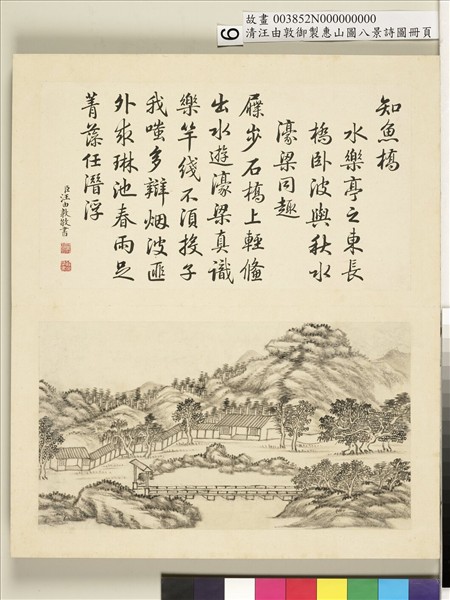 故畫 003852N000000000
清汪由敦御製惠山園八景詩圖冊頁
知魚橋
水樂亭之東長
橋卧波與秋水
濠梁同趣
屧步石橋上輕鯈
出水遊濠梁真識
樂竿綫不須投子
我嗤多辯烟波匪
外求琳池春雨足
菁藻任潛浮
臣汪由敦敬書